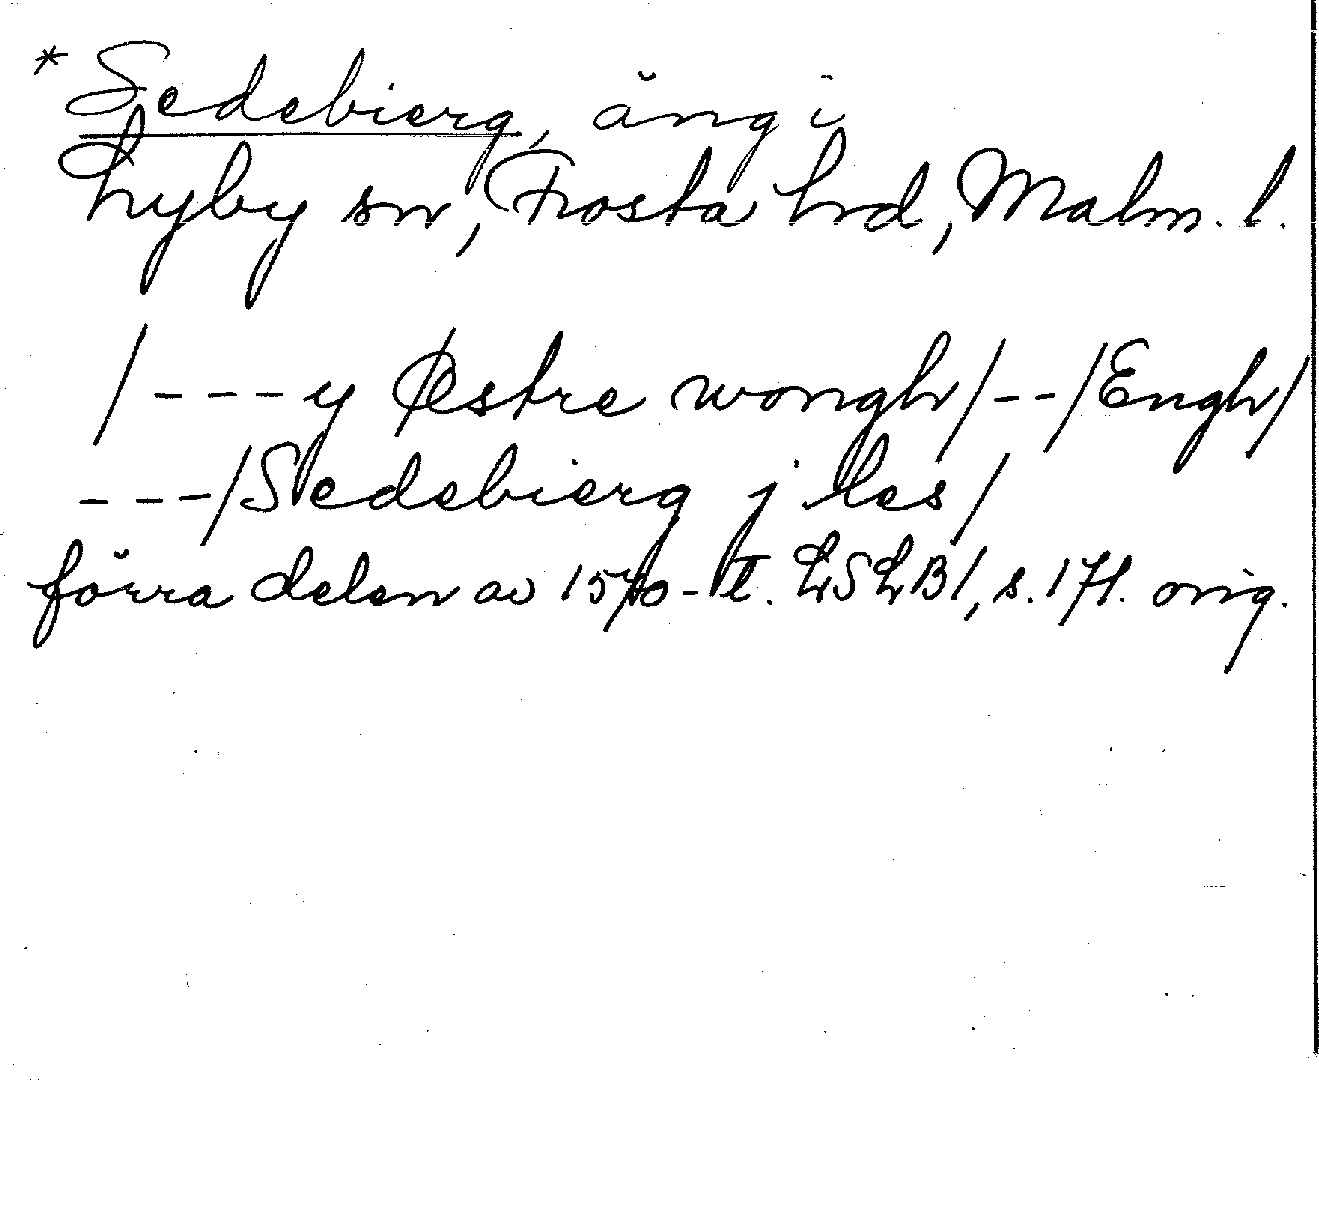 * Sedebierg, äng i
Lyby sn, Frosta hd, Malm. l.
/---y Østre wongh/--/Engh/
---/Sedebierg j les/
förra delen av 1570-t. LSLB1, s. 171. orig.